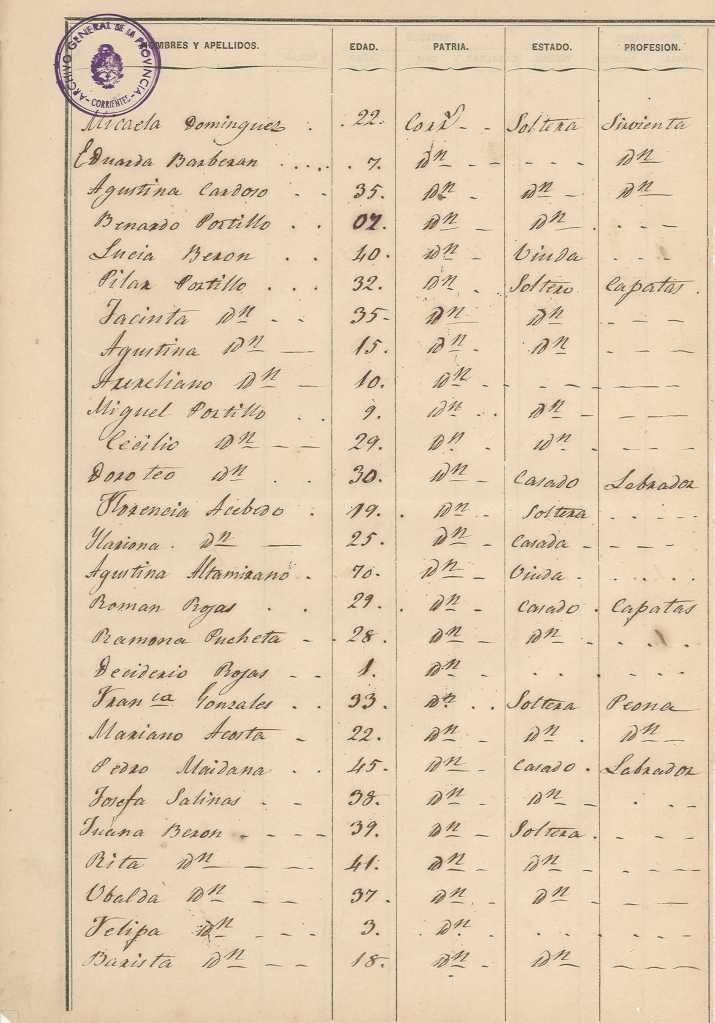 ARCHIVO GENERAL DE LA PROVINCIA - CORRIENTES -
NOMBRES Y APELLIDOS. EDAD. PATRIA. ESTADO. PROFESION.
Micaela Dominguez . 22. Corrs - - Soltera Sirvienta
Eduarda Barberan .... . 7. Dn - - - - - Dn
Agustina Cardoso - - 35. Dn - Dn - Dn
Benardo Portillo . . 07. Dn - Dn . . - - -
Lucia Beron . . 40. Dn - Viuda . - - -
Pilar Portillo . . . 32. Dn . Soltero Capatas .
Jacinta Dn - - 35- Dn Dn - - - -
Agustina Dn — 15. Dn . Dn . - - -
Aureliano Dn — 10. Dn - - - - - - - -
Miguel Portillo . . 9. Dn . . Dn - - - -
Cecilio Dn - - 29. Dn . Dn . - - -
Doroteo Dn . . 30. Dn - Casado Labrador
Florencia Acebedo . 19. . Dn - Soltera . . . . .
Ylariona . Dn — 25. Dn - Casada - - - -
Agustina Altamirano . 70. Dn - Viuda . . . . . .
Roman Rojas . . 29. . Dn - Casado . Capatas
Ramona Pucheta - . 28. Dn - Dn - . . . .
Deciderio Rojas - - 1. Dn . . . . - - -
Franca Gonzales . . 33. Dn . . Soltera Peona
Mariano Acosta - 22. Dn - Dn . Dn
Pedro Maidana . . 45. Dn - Casado . Labrador
Josefa Salinas - - 38. Dn - Dn - . - - -
Juana Beron - - - - 39. Dn - Soltera . - - -
Rita Dn - - - 41. Dn - Dn - - - -
Ubalda Dn - - - 37. Dn - Dn - - - -
Felipa Dn - - - 3. . Dn . . . . . . - - -
Barista Dn - - - 18. Dn - Dn - - - -